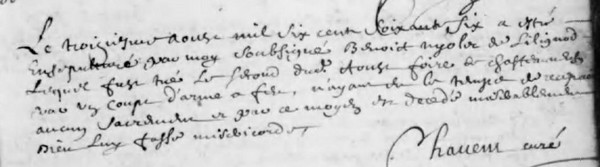 Le troiziesme aoust mil six cent soixant six a esté
Ensepulturé par moy soubsigné Benoist nycolas de Lilignod
Lequel fust tué Le second dud aoust foire de
par un coupt d'arme a feu, n'ayant eu le temps de recepvoir
aucun sacrement et par ce moyen est decedé miserablement
Dieu luy fasse misericorde
curé